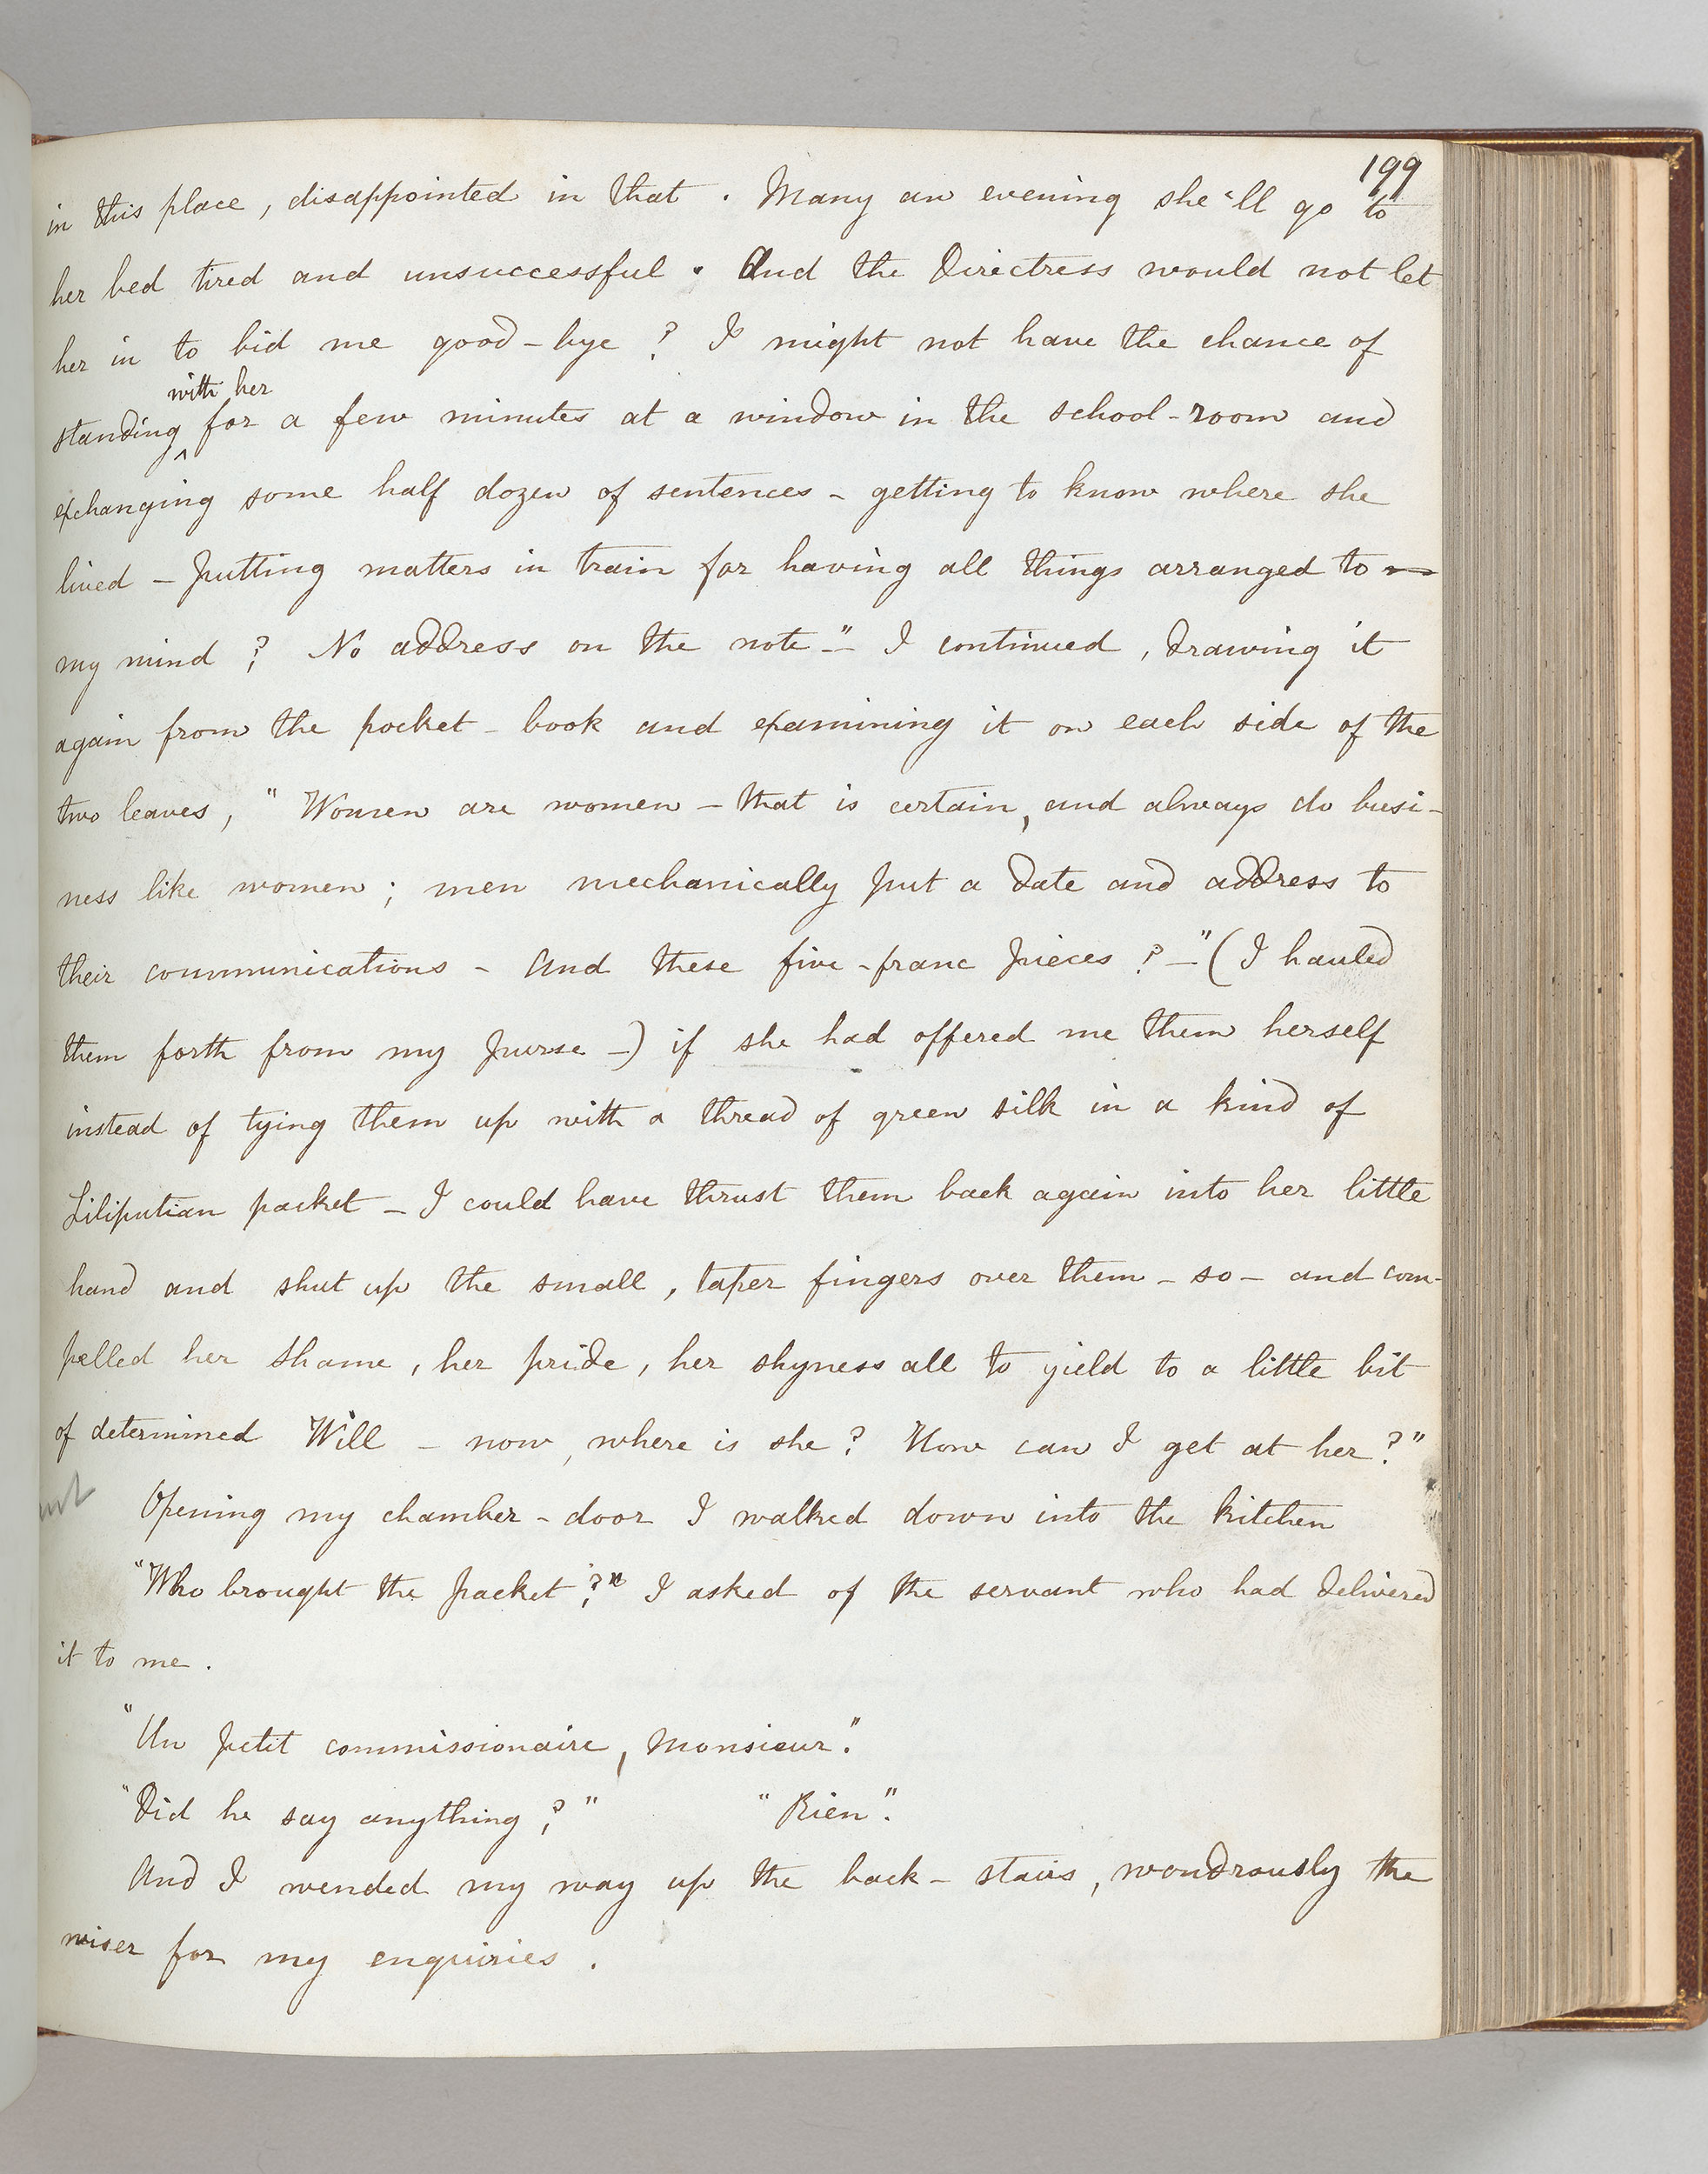 199
in this place, disappointed in that. Many an evening she'll go to
her bed tired and unsuccessful. And the Directress would not let
her in to bid me good-bye? I might not have the chance of
with her
standing ^ for a few minutes at a window in the school-room and
exchanging some half dozen of sentences - getting to know where she
lived - putting matters in train for having all things arranged to
my mind? No address on the note-" I continued, drawing it
again from the pocket-book and examining it on each side of the
two leaves, "Women are women - that is certain, and always do busi-
ness like women; men mechanically put a date and address to
their communications - And these five-franc pieces? -" (I hauled
them forth from my purse -) if she had offered me them herself
instead of tying them up with a thread of green silk in a kind of
Liliputian packet - I could have thrust them back again into her little
hand and shut up the small, taper fingers over them - so - and com-
pelled her shame, her pride, her shyness all to yield to a little bit
of determined Will - now, where is she? How can I get at her?"
Opening my chamber-door I walked down into the kitchen
"Who brought the packet?" I asked of the servant who had delivered
it to me.
"Un petit commissionaire, Monsieur."
"Did he say anything?" "Rien".
And I wended my way up the back-stairs, wondrously the
wiser for my enquiries.